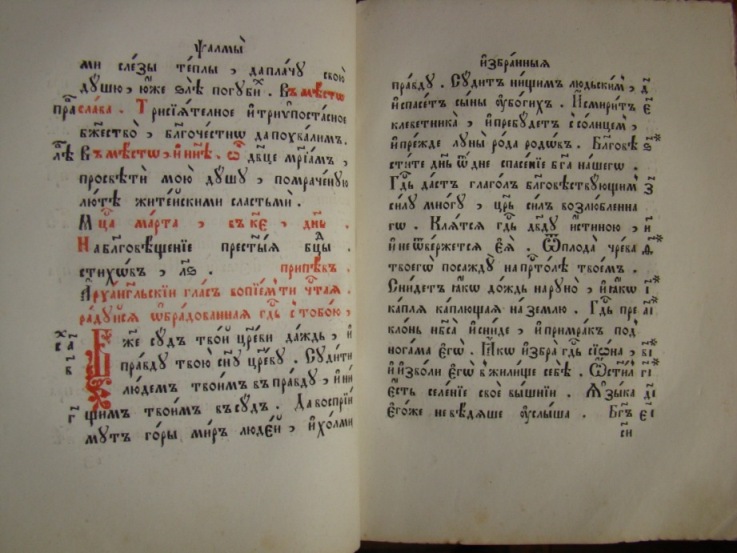 ѱалмы̀
ми сле́зы те́плы , да пла́чу свою̀
ду́шю , ю́же ѕлѣ̀ погуби́х . Въ мѣ́сто
пра сла́ва . Трисїѧ́телное и҆ трїѵпоста́сное
бжество̀ , блгоче́стно да похва́лим .
глѣ Въ мѣ́сто , и҆ нн҃ѣ . ѿ дв҃це мр҃їам ,
просвѣтѝ мою̀ ду́шу , помраче́ную
лю́тѣ жите́йскими сластьмѝ .
Мц҃а ма́рта , въ к҃е , дн҃ь .
На блговѣ́щенїе прест҃ы́ѧ бцы д
стихо́въ , л҃ѕ . припѣ́въ .
А҆рха́нгльскїи гла́с вопїе́м ти чт҃аѧ .
ра́дуйсѧ ѡ҆бра́дованнаѧ гд҃ь с тобо́ю ,
Бж҃е су́дъ тво́й цр҃еви да́ждь , и҆
пра́вду твою̀ сн҃у цр҃еву . Суди́ти
лю́дем твои́м въ пра́вду , и҆ ни
щим твои́м въ су́дъ . Да воспрїи́
му́т го́ры ми́ръ лю́дем , и҆ хо́лми
и҆збра́нныѧ
пра́вду . Су́дит ни́щим лю́дьским , д҃
и҆ спасе́т сы́ны ᲂу҆бо́гих . И҆ смири́т е҃
клеветника̀ , и҆ пребу́детъ с со́лнцем , ѕ҃
и҆ пре́жде луны̀ ро́да родо́въ . Блгове
сти́те дн҃ь ѿ дне спасе́нїе бг҃а на́шегѡ .
Гд҃ь да́стъ глаго́л блговѣству́ющим з҃
си́лу мно́гу , цр҃ь си́лъ возлю́бленна
гѡ . Клѧ́тсѧ гд҃ь дв҃ду и҆́стиною , и҃
и҆ не ѿве́ржетсѧ е҆ѧ̀ . Ѿ плода̀ чре́ва ѳ҃
твоегѡ̀ посажду̀ на прт҃о́лѣ твое́м .
Сни́детъ ꙗ҆́кѡ до́ждь на руно̀ , и҆ ꙗ҆́кѡ і҃
ка́плѧ ка́плющаѧ на зе́млю . Гд҃ь пре а҃і
кло́нь нб҃са и҆ сни́де , и҆ примра́къ под
нога́ма є҆гѡ̀ . Ꙗ҆́кѡ и҆збра̀ гд҃ь сїѡ́на , в҃і
и҆ и҆зво́ли є҆гѡ̀ в жили́ще себѣ̀ . Ѡ҆ст҃и́л г҃і
є҆́сть селе́нїе своѐ вы́шнїи . Ꙗ҆зы́ка д҃і
є҆гѡ́же не вѣ́дѧше ᲂу҆слы́ша . Бг҃ъ е҃і
си